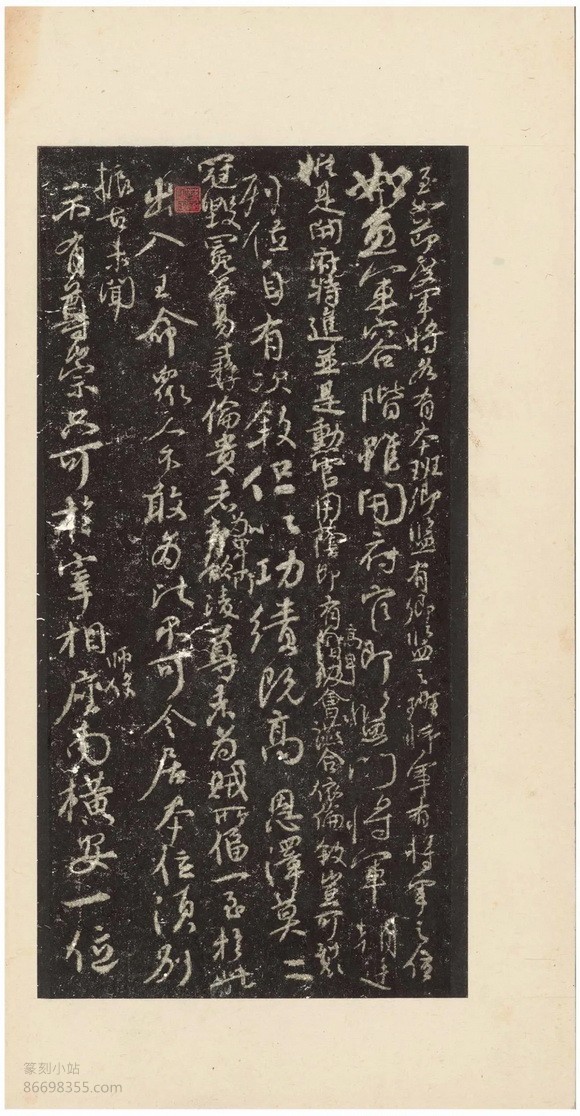 至如節度軍將各有本班卿監有卿監之班將軍有將軍之位
如魚軍容階雖開府官即監門將軍朝廷
縱是開府特進並是勳官用蔭即有高卑會讌合依倫敘豈可裂
列位自有次敘但以功績既高恩澤莫二
冠毀冕反易彝倫貴者為卑所凌尊者為賊所偪一至於此
出入王命眾人不敢為比不可令居本位須別
振古未聞
示有尊崇只可於宰相師保座南橫安一位
篆刻小站
86698355.com